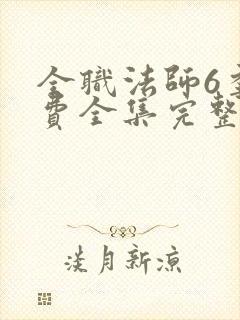 全職法師6
費全集完整
淡月新涼